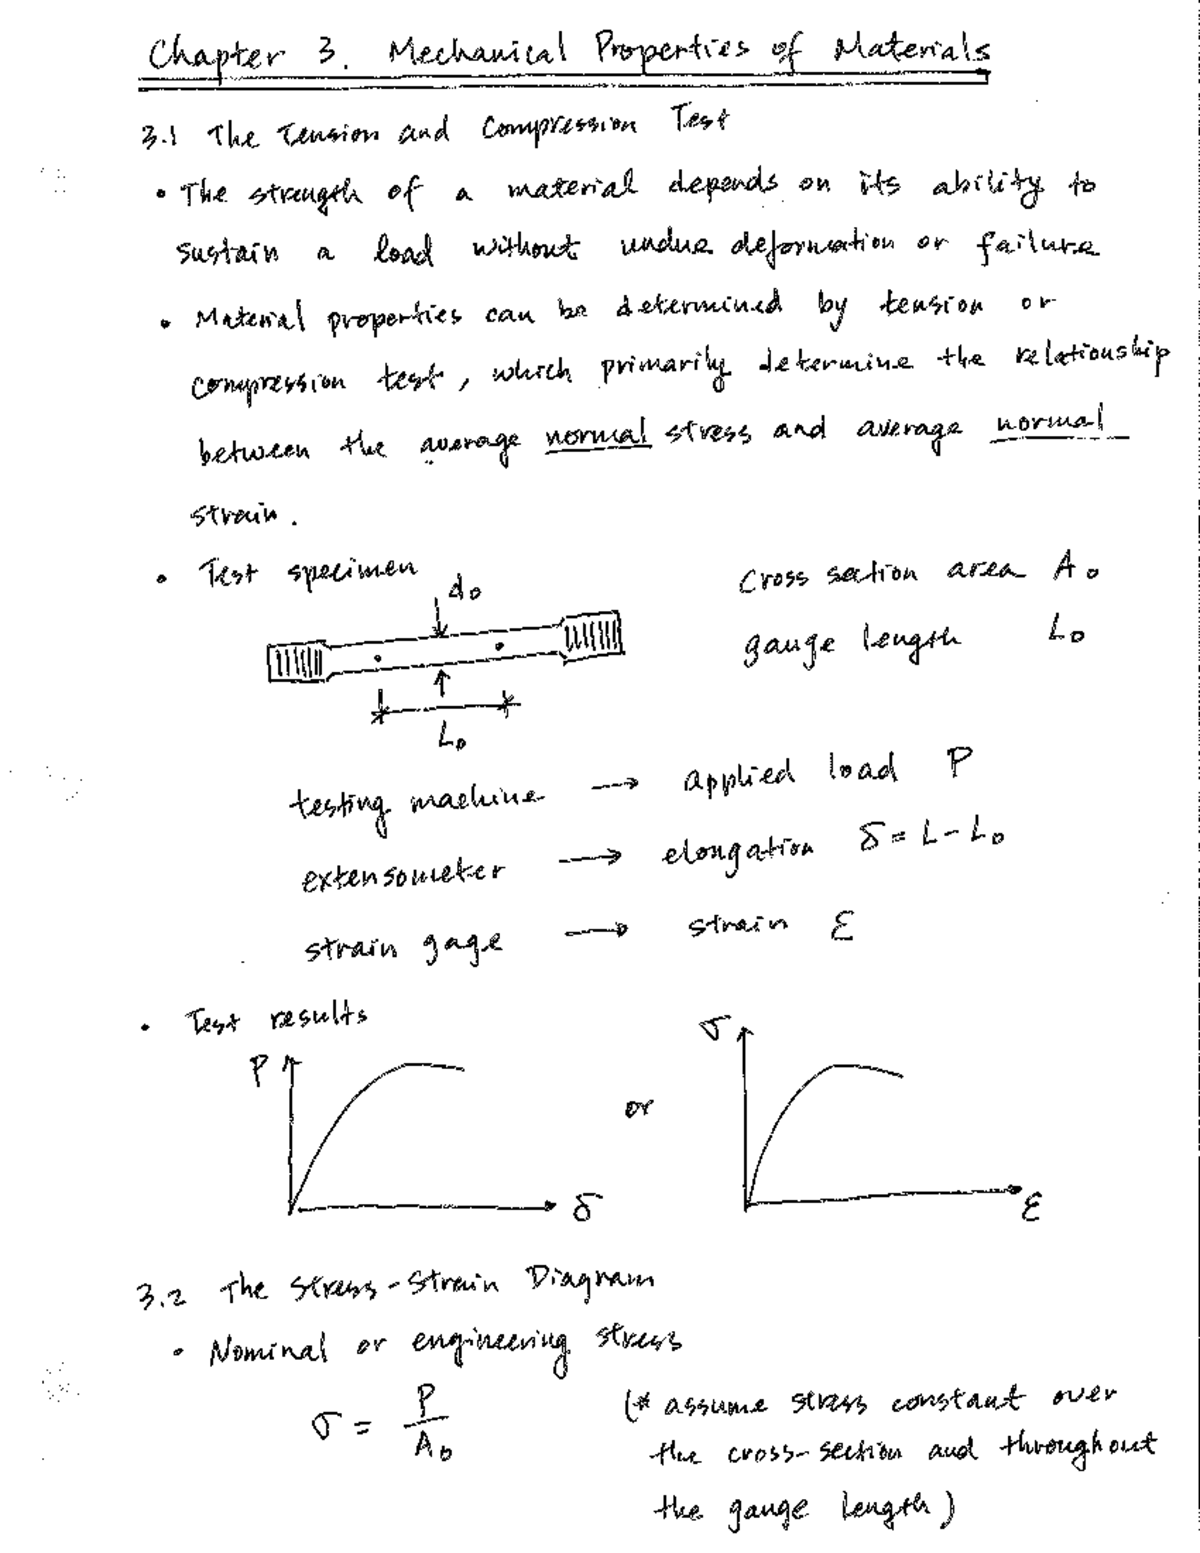 Chapter 3. Mechanical Properties of Materials
3.1 The Tension and Compression Test
• The strength of a material depends on its ability to
sustain a load without undue deformation or failure
• Material properties can be determined by tension or
compression test, which primarily determine the relationship
between the average normal stress and average normal
strain.
• Test specimen
d₀
Cross section area A₀
gauge length L₀
L₀
testing machine → applied load P
extensometer → elongation δ = L - L₀
strain gage → strain ε
• Test results
P
δ
or
σ
ε
3.2 The Stress-Strain Diagram
• Nominal or engineering stress
σ = P/A₀
(* assume stress constant over
the cross-section and throughout
the gauge length)